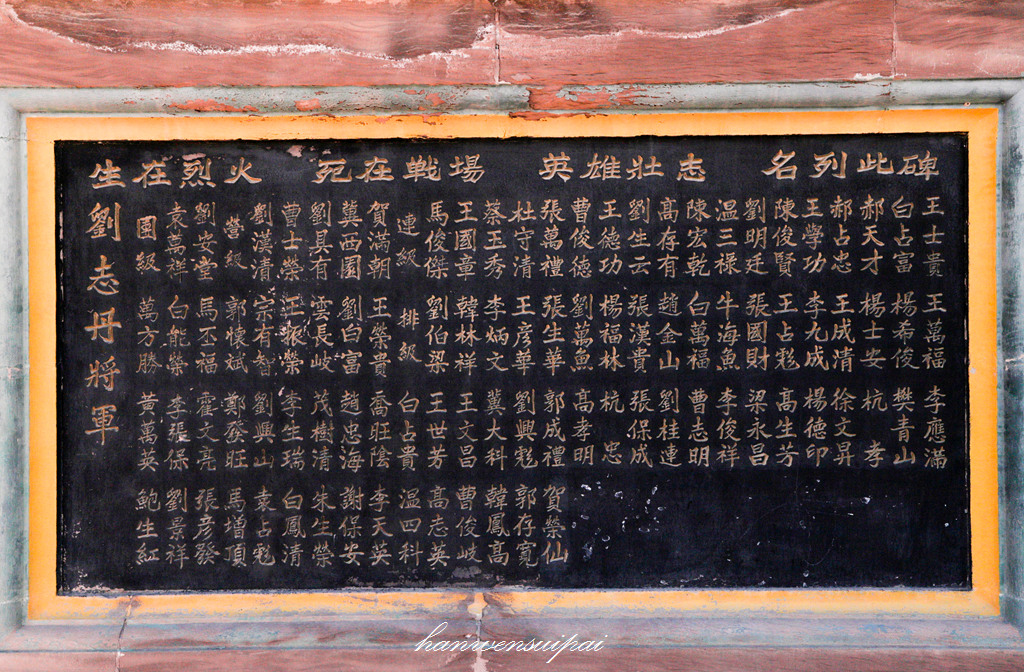 生在烈火 死在戰場 英雄壯志 名列此碑
劉志丹將軍
團級 萬方勝 黃萬英 鮑生紅
袁萬祥 白能榮 李張保 劉景祥
劉安堂 馬丕福 霍文亮 張彥發
營級 郭懷斌 鄭發旺 馬增頂
劉漢清 宗有智 劉興山 袁占魁
曹士榮 王振榮 李生瑞 白鳳清
劉具有 雲長岐 茂樹清 朱生榮
冀西園 劉白富 趙忠海 謝保安
賀滿朝 王榮貴 喬旺陰 李天英
連級 排級 白占貴 溫四科
馬俊傑 劉伯梁 王世芳 高志英
王國章 韓林祥 王文昌 曹俊岐
蔡玉秀 李炳文 冀大科 韓鳳高
杜守清 王彥華 劉興魁 郭存寬
張萬禮 張生華 郭成禮 賀榮仙
曹俊德 劉萬魚 高孝明
王德功 楊福林 杭忠
劉生云 張漢貴 張保成
高存有 趙金山 劉桂連
陳宏乾 白萬福 曹志明
溫三祿 牛海魚 李俊祥
劉明廷 張國財 梁永昌
陳俊賢 王占魁 高生芳
王學功 李九成 楊德印
郝占忠 王成清 徐文昇
郝天才 楊士安 杭孝
白占富 楊希俊 樊青山
王士貴 王萬福 李應滿
hanwensuipai